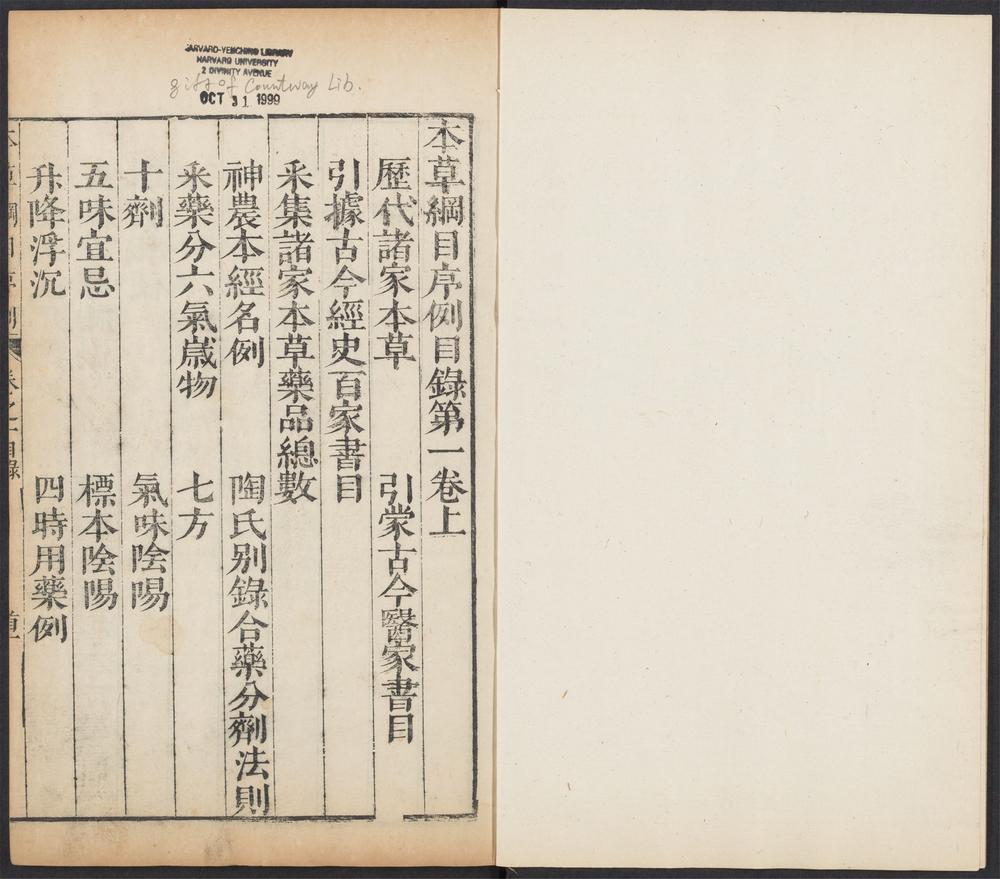 HARVARD-YENCHING LIBRARY
HARVARD UNIVERSITY
2 DIVINITY AVENUE
gift of Countway Lib.
OCT 31 1999
本草綱目序例目錄第一卷上
歷代諸家本草 引蒙古今醫家書目
引據古今經史百家書目
采集諸家本草藥品總數
神農本經名例 陶氏别錄合藥分劑法則
采藥分六氣歲物 七方
十劑 氣味陰陽
五味宜忌 標本陰陽
升降浮沉 四時用藥例
本草綱目序例 卷之一目錄